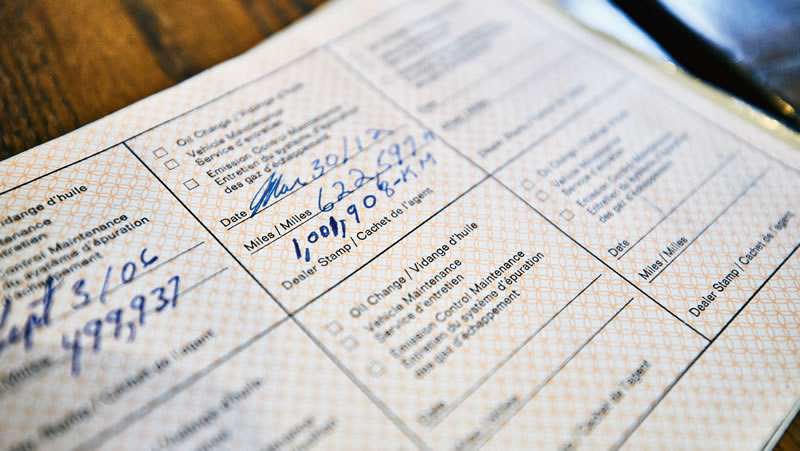 Vidange d'huile
Maintenance
Control Maintenance
du système d'épuration
Sept 3/06
499,937
Cachet de l'agent
Oil Change / Vidange d'huile
Vehicle Maintenance
Service d'entretien
Emission Control Maintenance
Entretien du système d'épuration
des gaz d'échappement
Date Mar 30/12
Miles / Milles 622,597 m
1,001,908-KM
Dealer Stamp / Cachet de l'agent
Oil Change / Vidange d'huile
Vehicle Maintenance
Service d'entretien
Emission Control Maintenance
Entretien du système d'épuration
des gaz d'échappement
Date
Miles / Milles
Cachet de l'agent
Oil Change / Vidange d'huile
Vehicle Maintenance
Service d'entretien
Emission Control Maintenance
Entretien du système d'épuration
des gaz d'échappement
Date
Miles / Milles
Dealer Stamp / Cachet de l'agent
Vidange d'huile
Maintenance